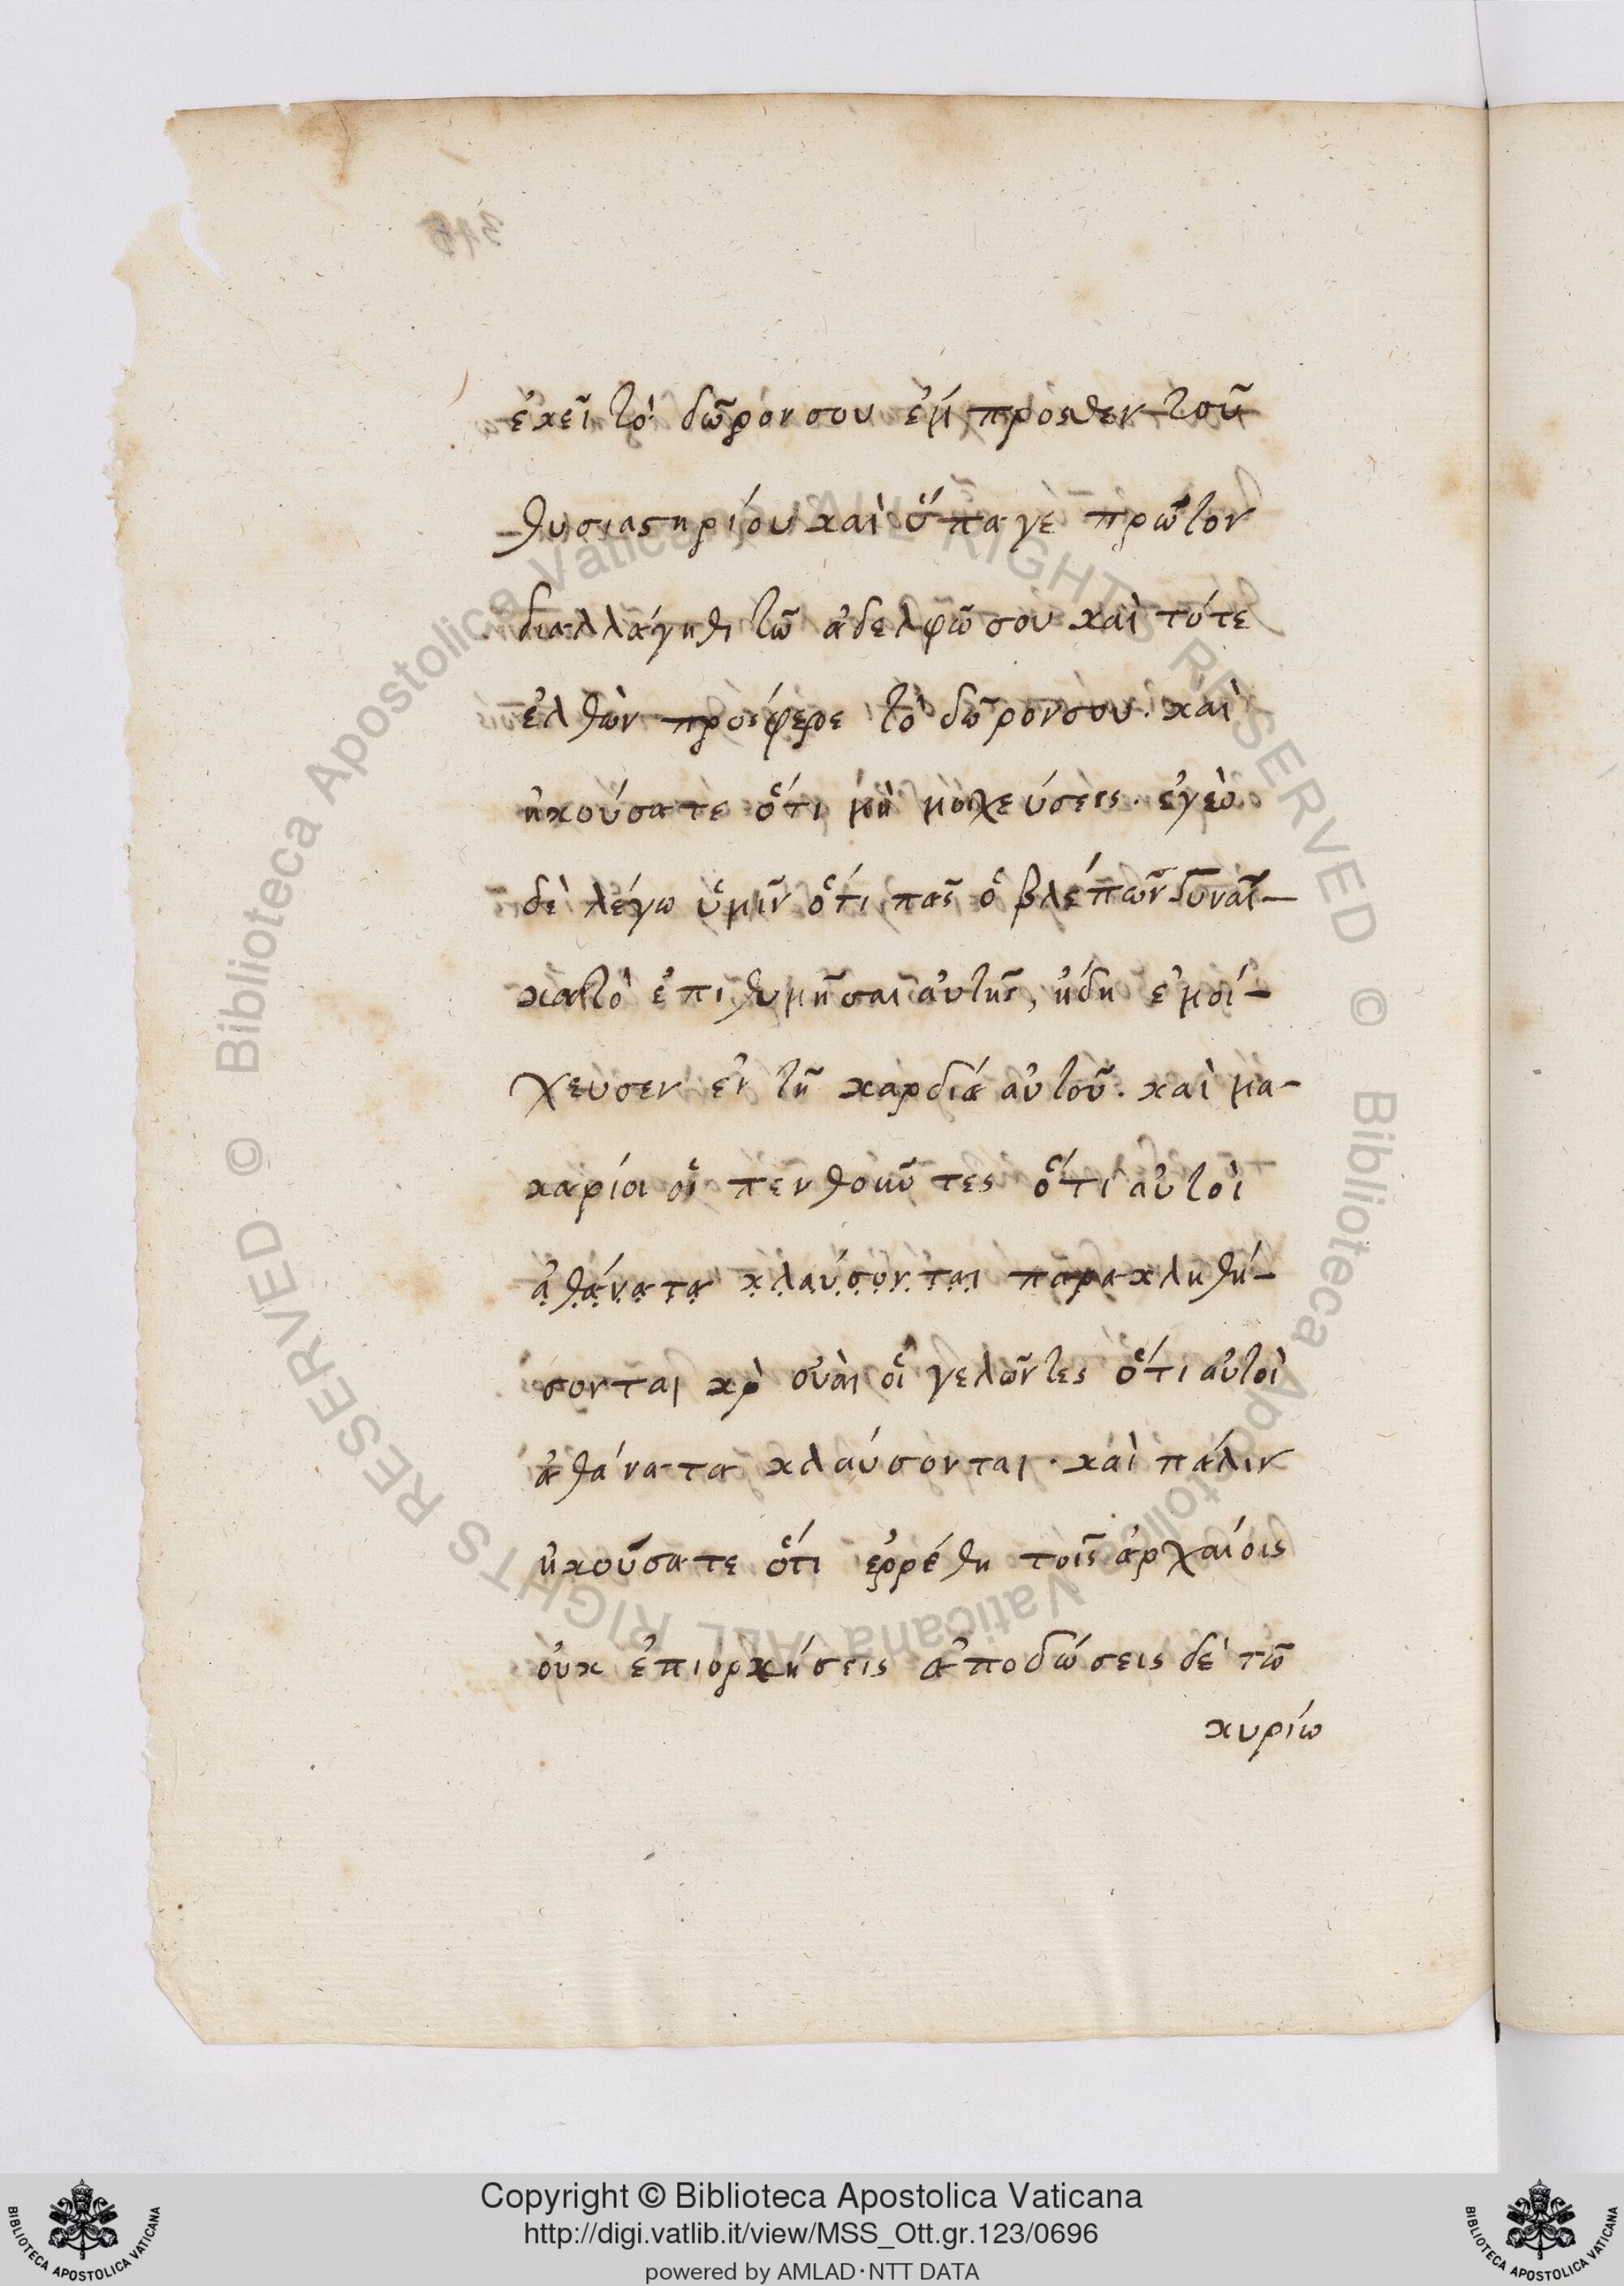 ἐκεῖ τὸ δῶρόν σου ἔμπροσθεν τοῦ
θυσιαστηρίου καὶ ὕπαγε πρῶτον
διαλλάγηθι τῶ ἀδελφῶ σου καὶ τότε
ἐλθὼν πρόσφερε τὸ δῶρον σου. καὶ
ἠκούσατε ὅτι μὴ μοιχεύσεις. ἐγὼ
δὲ λέγω ὑμῖν ὅτι πᾶς ὁ βλέπων γυναῖ-
κα τὸ ἐπιθυμῆσαι αὐτῆς, ἤδη ἐμοί-
χευσεν ἐν τῆ καρδιά αὐτοῦ. καὶ μα-
κάριοι οἱ πενθοῦντες ὅτι αὐτοὶ
ἀθάνατα κλαύσονται παρακληθή-
σονται καὶ οὐαὶ οἱ γελῶντες ὅτι αὐτοὶ
ἀθάνατα κλαύσονται. καὶ πάλιν
ἠκούσατε ὅτι ἐρρέθη τοῖς ἀρχαίοις
οὐκ ἐπιορκήσεις ἀποδώσεις δὲ τῶ
κυρίω
Biblioteca Apostolica Vaticana ALL RIGHTS RESERVED ©
Biblioteca Apostolica Vaticana ALL RIGHTS RESERVED ©
Copyright © Biblioteca Apostolica Vaticana
http://digi.vatlib.it/view/MSS_Ott.gr.123/0696
powered by AMLAD·NTT DATA
BIBLIOTECA APOSTOLICA VATICANA
BIBLIOTECA APOSTOLICA VATICANA